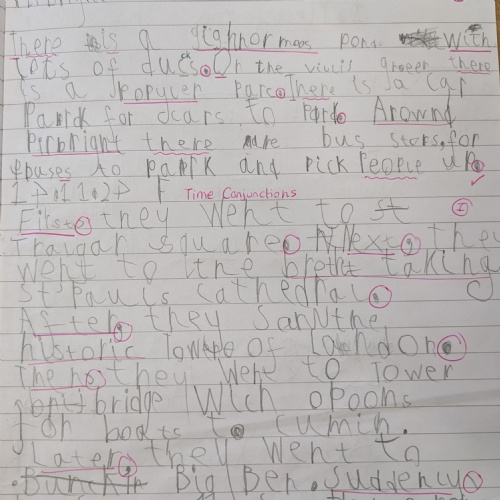 There is a gighnormoos pond with
Lots of ducs. On the vicils green there
is a Populer Parc. There is a car
Parrk for cars to Park. Arownd
Pirbright there are bus stors, for
buses to parrk and Pick People up.
Time Conjunctions
First, they went to st
Tralgar square. Next, they
went to the breht taking
St Pauls cathedral.
After, they saw the
historic Tower of London.
Then, they went to Tower
bridge Wich opoons
for boats to cumin.
Later, they went to
Big Ben. Suddenly,